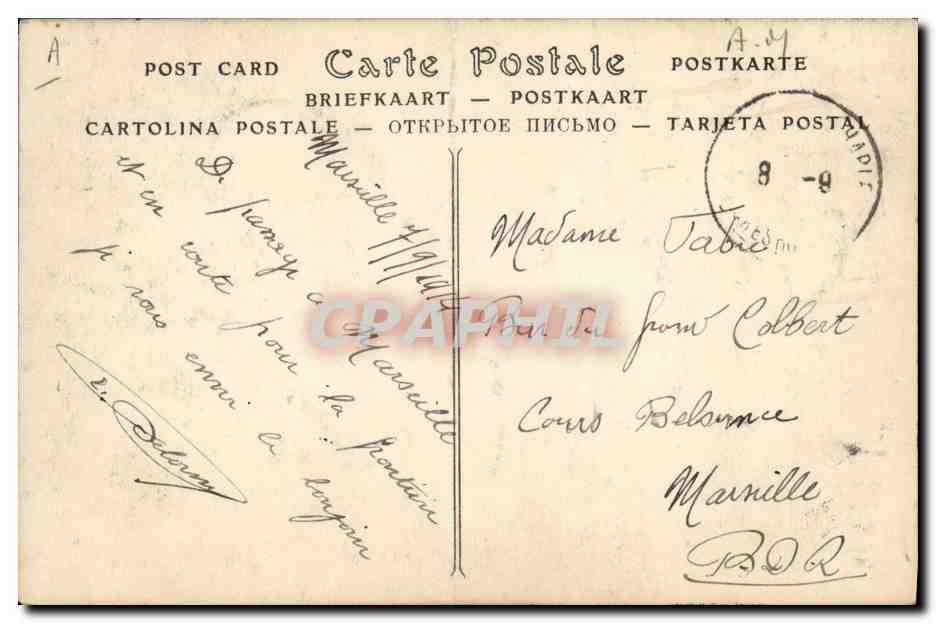 A
A-M
POST CARD Carte Postale POSTKARTE
BRIEFKAART — POSTKAART
CARTOLINA POSTALE — ОТКРЫТОЕ ПИСЬМО — TARJETA POSTAL
8 -9
Marseille 7/9/191
De passage a Marseille
et en route pour la frontière
je vous envoi le bonjour
Delorme
Madame Fabre
Bar du fronw Colbert
Cours Belsunce
Marseille
BDR
CPAPHIL